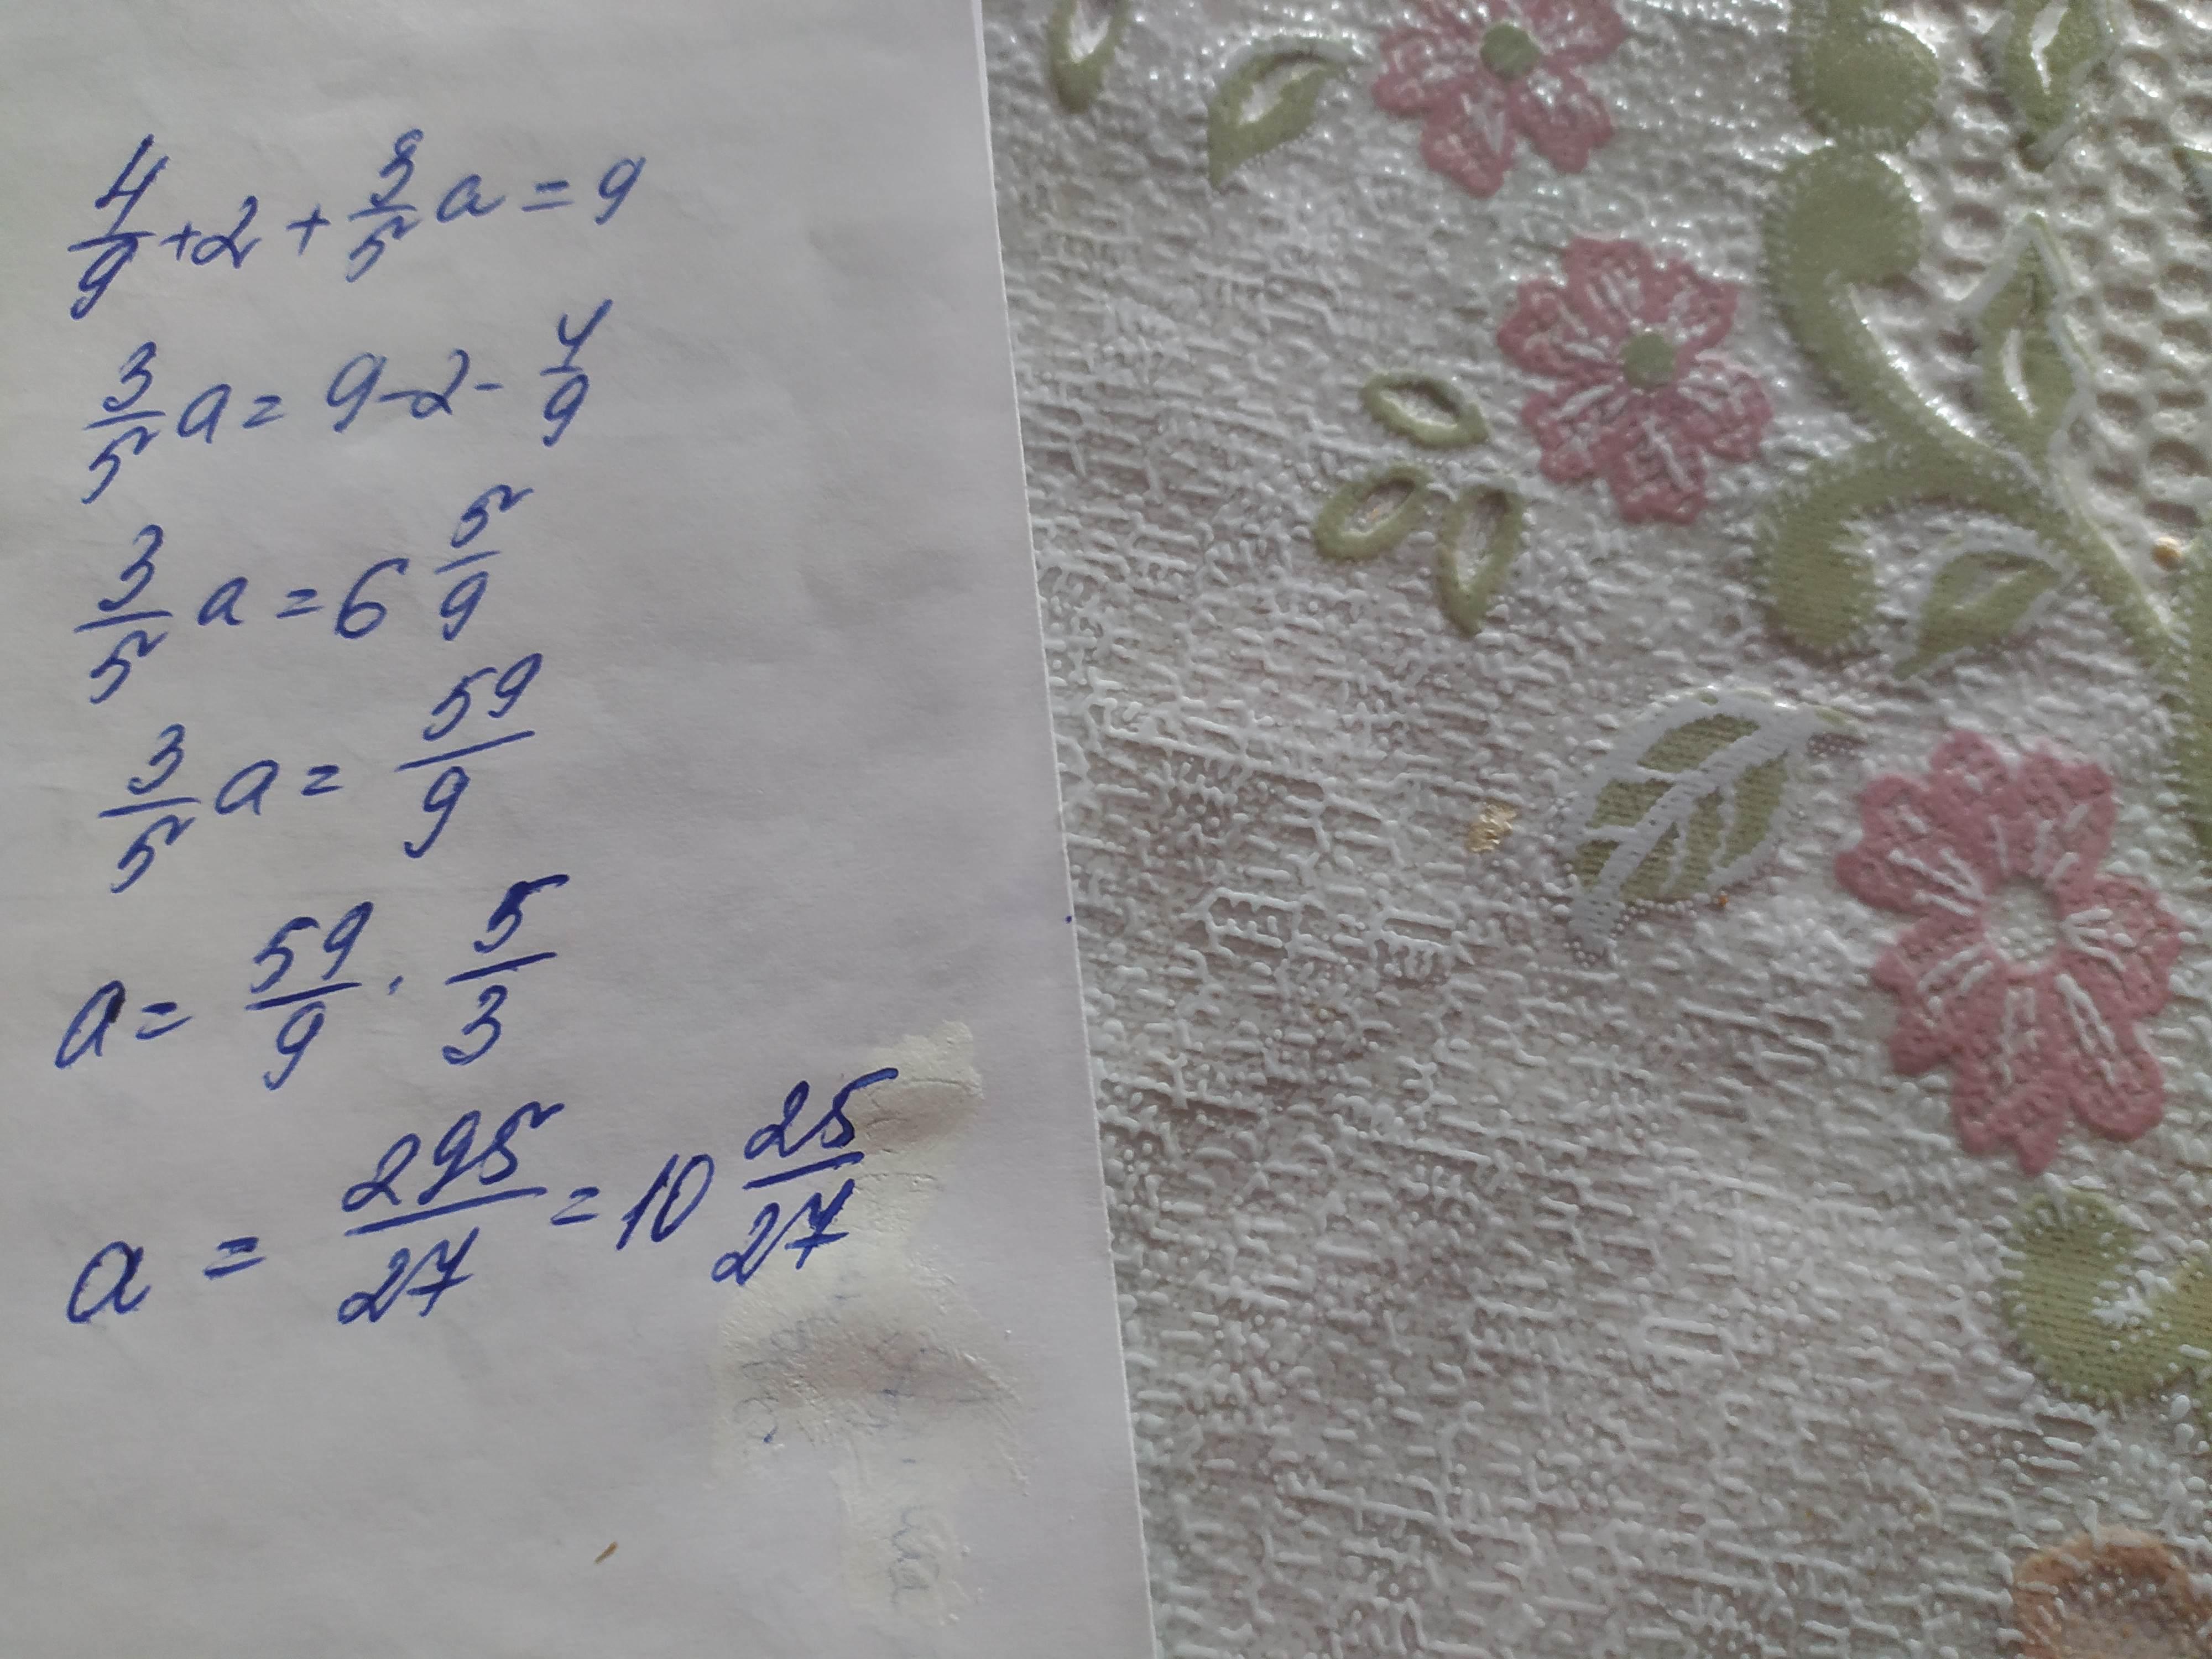 4/9 + 2 + 3/5 a = 9
3/5 a = 9 - 2 - 4/9
3/5 a = 6 5/9
3/5 a = 59/9
a = 59/9 · 5/3
a = 295/27 = 10 25/27